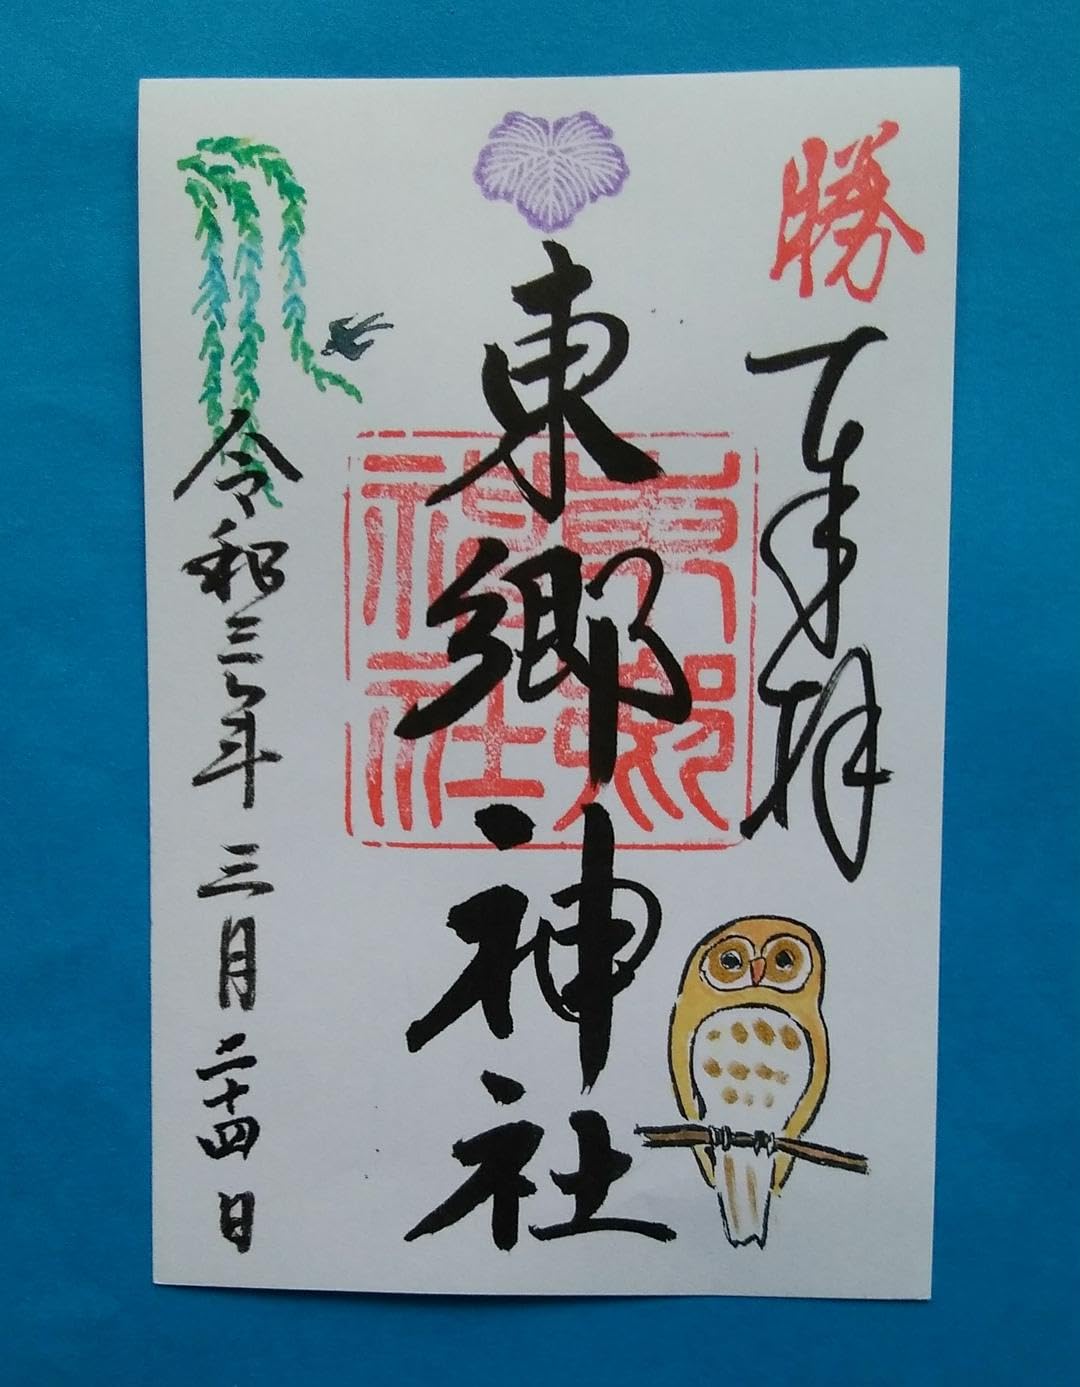 勝
奉拝
東郷神社
東郷
神社
令和三年三月二十四日